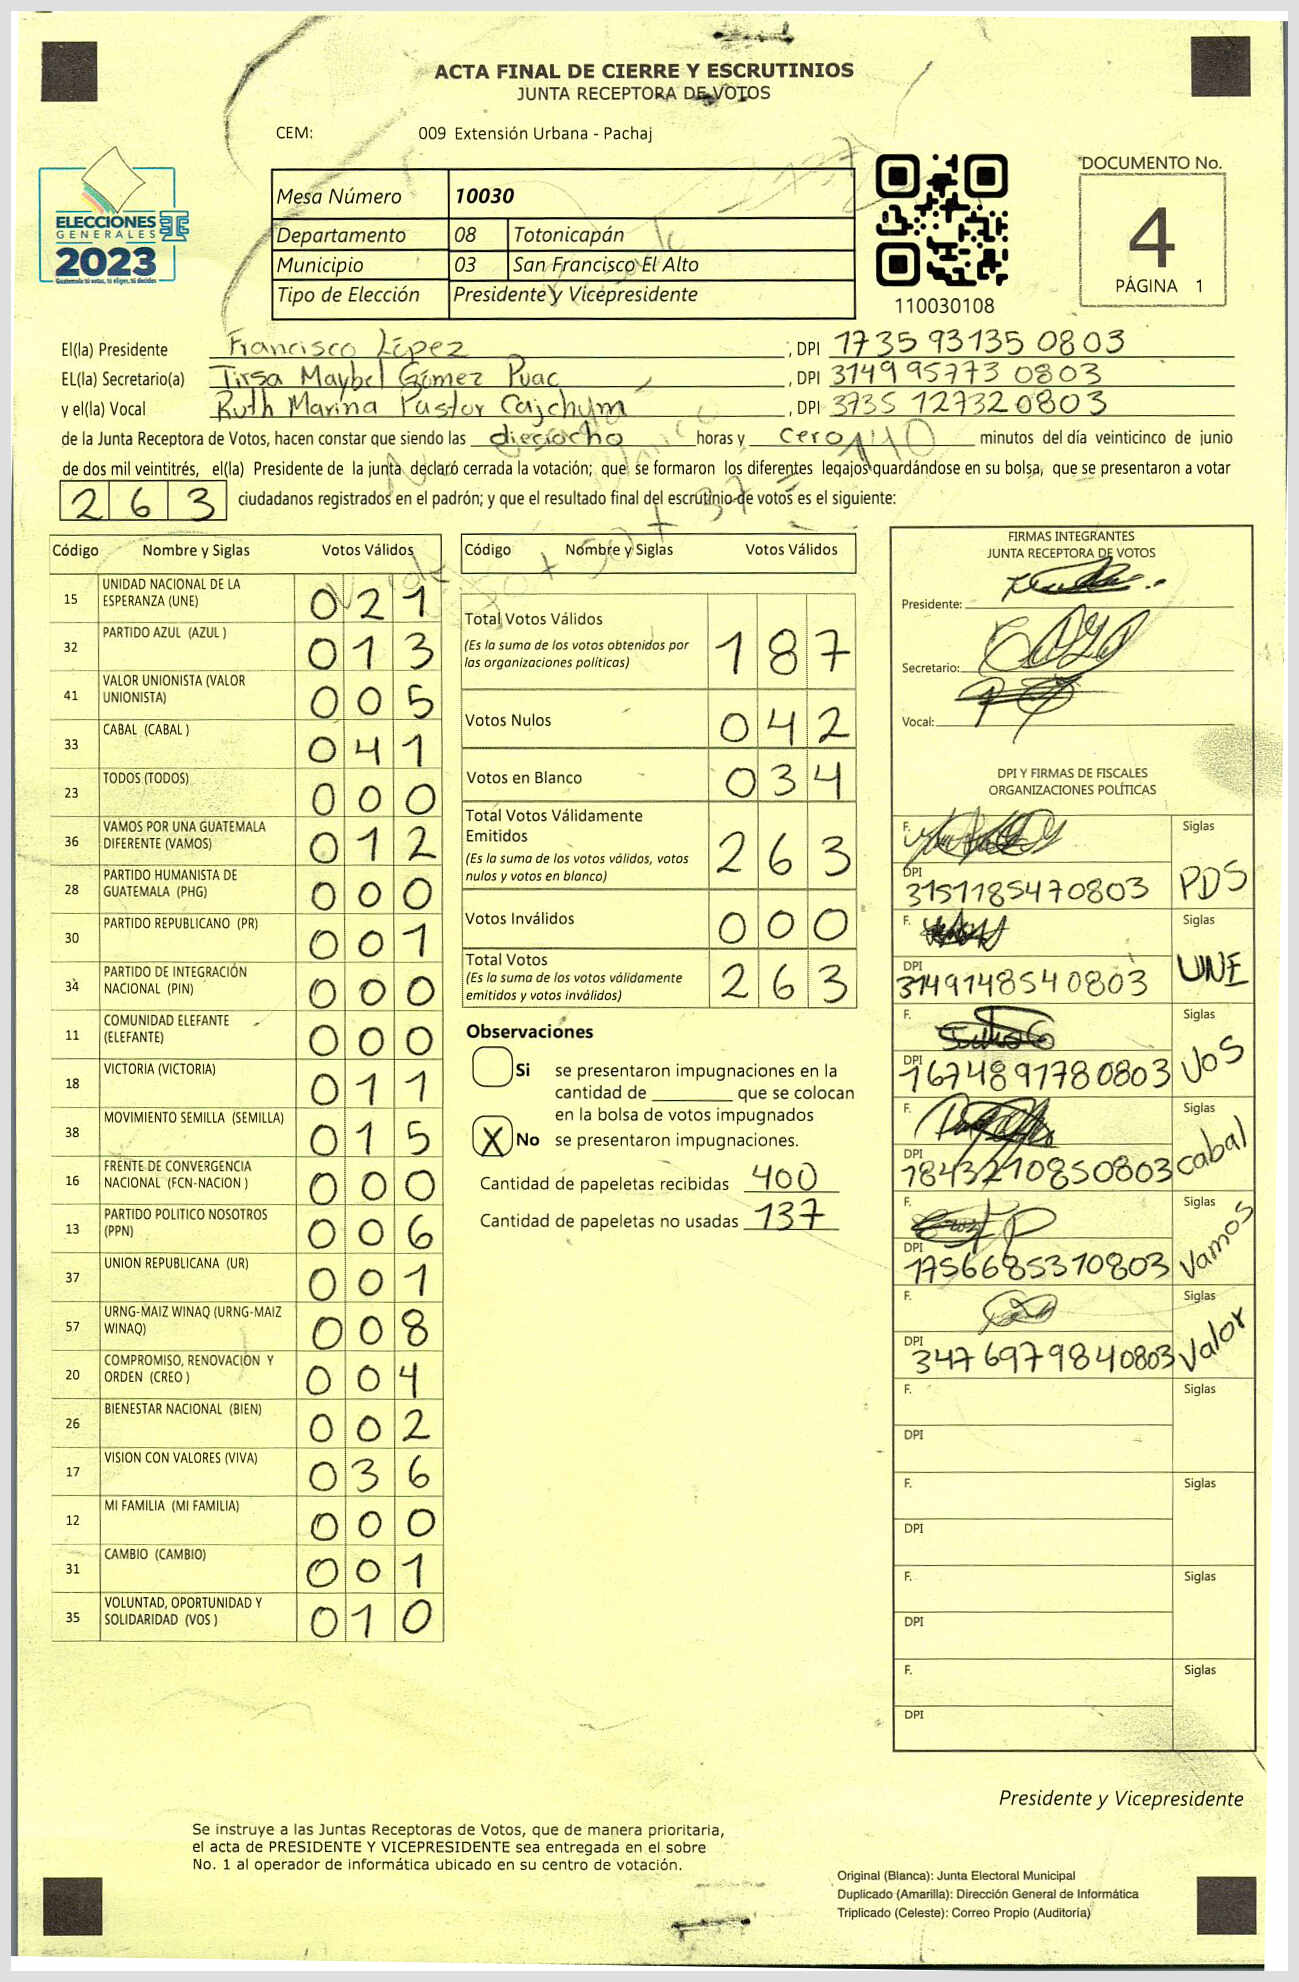 ACTA FINAL DE CIERRE Y ESCRUTINIOS
JUNTA RECEPTORA DE VOTOS
CEM: 009 Extensión Urbana - Pachaj
ELECCIONES
GENERALES
2023
Guatemala tú votas, tú eliges, tú decides
Mesa Número 10030
Departamento 08 Totonicapán
Municipio 03 San Francisco El Alto
Tipo de Elección Presidente y Vicepresidente
110030108
DOCUMENTO No.
4
PÁGINA 1
El(la) Presidente Francisco López , DPI 1735 93135 0803
EL(la) Secretario(a) Tirsa Maybel Gómez Puac , DPI 3149 95773 0803
y el(la) Vocal Ruth Marina Pastor Cajchum , DPI 3735 12732 0803
de la Junta Receptora de Votos, hacen constar que siendo las dieciocho horas y cero minutos del día veinticinco de junio
de dos mil veintitrés, el(la) Presidente de la junta declaró cerrada la votación; que se formaron los diferentes legajos guardándose en su bolsa, que se presentaron a votar
263 ciudadanos registrados en el padrón; y que el resultado final del escrutinio de votos es el siguiente:
Código Nombre y Siglas Votos Válidos
15 UNIDAD NACIONAL DE LA ESPERANZA (UNE) 021
32 PARTIDO AZUL (AZUL ) 013
41 VALOR UNIONISTA (VALOR UNIONISTA) 005
33 CABAL (CABAL ) 041
23 TODOS (TODOS) 000
36 VAMOS POR UNA GUATEMALA DIFERENTE (VAMOS) 012
28 PARTIDO HUMANISTA DE GUATEMALA (PHG) 000
30 PARTIDO REPUBLICANO (PR) 001
34 PARTIDO DE INTEGRACIÓN NACIONAL (PIN) 000
11 COMUNIDAD ELEFANTE (ELEFANTE) 000
18 VICTORIA (VICTORIA) 011
38 MOVIMIENTO SEMILLA (SEMILLA) 015
16 FRENTE DE CONVERGENCIA NACIONAL (FCN-NACION ) 000
13 PARTIDO POLITICO NOSOTROS (PPN) 006
37 UNION REPUBLICANA (UR) 001
57 URNG-MAIZ WINAQ (URNG-MAIZ WINAQ) 008
20 COMPROMISO, RENOVACIÓN Y ORDEN (CREO ) 004
26 BIENESTAR NACIONAL (BIEN) 002
17 VISION CON VALORES (VIVA) 036
12 MI FAMILIA (MI FAMILIA) 000
31 CAMBIO (CAMBIO) 001
35 VOLUNTAD, OPORTUNIDAD Y SOLIDARIDAD (VOS ) 010
Código Nombre y Siglas Votos Válidos
Total Votos Válidos 187
(Es la suma de los votos obtenidos por las organizaciones políticas)
Votos Nulos 042
Votos en Blanco 034
Total Votos Válidamente Emitidos 263
(Es la suma de los votos válidos, votos nulos y votos en blanco)
Votos Inválidos 000
Total Votos 263
(Es la suma de los votos válidamente emitidos y votos inválidos)
Observaciones
Si se presentaron impugnaciones en la
cantidad de ________ que se colocan
en la bolsa de votos impugnados
X No se presentaron impugnaciones.
Cantidad de papeletas recibidas 400
Cantidad de papeletas no usadas 137
FIRMAS INTEGRANTES
JUNTA RECEPTORA DE VOTOS
Presidente:
Secretario:
Vocal:
DPI Y FIRMAS DE FISCALES
ORGANIZACIONES POLÍTICAS
F. Siglas
DPI 3151185470803 PDS
F. Siglas
DPI 3149148540803 UNE
F. Siglas
DPI 1674891780803 VOS
F. Siglas
DPI 1843210850803 cabal
F. Siglas
DPI 1756685310803 Vamos
F. Siglas
DPI 3476979840803 Valor
F. Siglas
DPI
F. Siglas
DPI
F. Siglas
DPI
F. Siglas
DPI
Presidente y Vicepresidente
Se instruye a las Juntas Receptoras de Votos, que de manera prioritaria,
el acta de PRESIDENTE Y VICEPRESIDENTE sea entregada en el sobre
No. 1 al operador de informática ubicado en su centro de votación.
Original (Blanca): Junta Electoral Municipal
Duplicado (Amarilla): Dirección General de Informática
Triplicado (Celeste): Correo Propio (Auditoría)